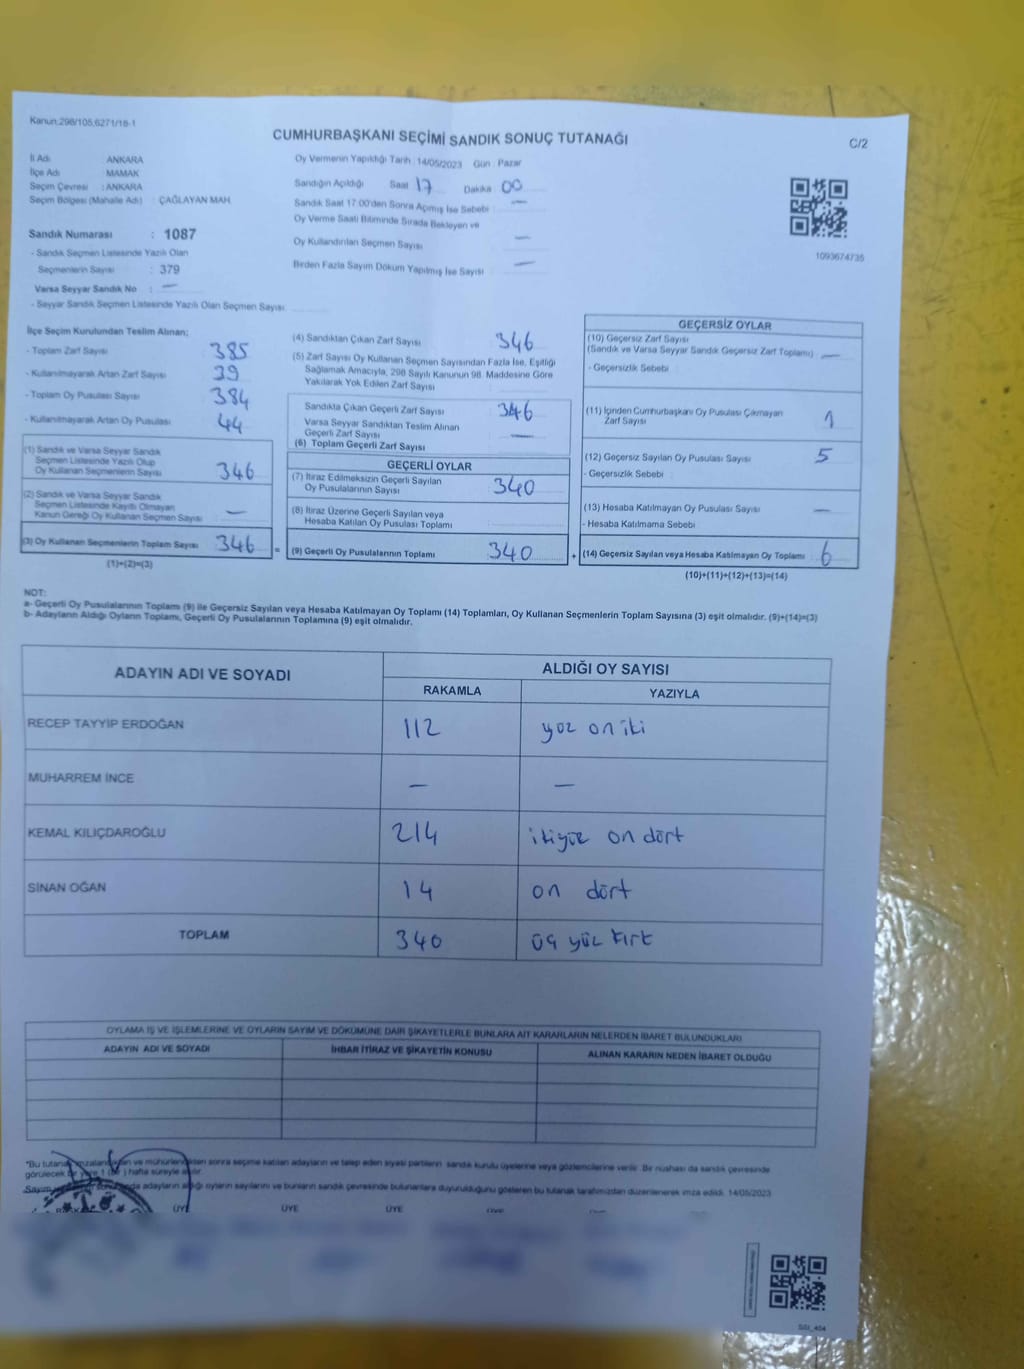 Kanun:298/105,6271/18-1
CUMHURBAŞKANI SEÇİMİ SANDIK SONUÇ TUTANAĞI
C/2
İl Adı : ANKARA
İlçe Adı : MAMAK
Seçim Çevresi : ANKARA
Seçim Bölgesi (Mahalle Adı) : ÇAĞLAYAN MAH.
Sandık Numarası : 1087
- Sandık Seçmen Listesinde Yazılı Olan
Seçmenlerin Sayısı : 379
Varsa Seyyar Sandık No : —
- Seyyar Sandık Seçmen Listesinde Yazılı Olan Seçmen Sayısı:
Oy Vermenin Yapıldığı Tarih : 14/05/2023 Gün : Pazar
Sandığın Açıldığı Saat 17 Dakika 00
Sandık Saat 17:00'den Sonra Açımış İse Sebebi : —
Oy Verme Saati Bitiminde Sırada Bekleyen ve
Oy Kullandırılan Seçmen Sayısı —
Birden Fazla Sayım Döküm Yapılmış İse Sayısı —
1093674735
İlçe Seçim Kurulundan Teslim Alınan;
- Toplam Zarf Sayısı 385
- Kullanılmayarak Artan Zarf Sayısı 39
- Toplam Oy Pusulası Sayısı 384
- Kullanılmayarak Artan Oy Pusulası 44
(1) Sandık ve Varsa Seyyar Sandık
Seçmen Listesinde Yazılı Olup
Oy Kullanan Seçmenlerin Sayısı 346
(2) Sandık ve Varsa Seyyar Sandık
Seçmen Listesinde Kayıtlı Olmayan
Kanun Gereği Oy Kullanan Seçmen Sayısı —
(3) Oy Kullanan Seçmenlerin Toplam Sayısı 346
(1)+(2)=(3)
=
(4) Sandıktan Çıkan Zarf Sayısı 346
(5) Zarf Sayısı Oy Kullanan Seçmen Sayısından Fazla İse, Eşitliği
Sağlamak Amacıyla, 298 Sayılı Kanunun 98. Maddesine Göre
Yakılarak Yok Edilen Zarf Sayısı
Sandıkta Çıkan Geçerli Zarf Sayısı 346
Varsa Seyyar Sandıktan Teslim Alınan
Geçerli Zarf Sayısı —
(6) Toplam Geçerli Zarf Sayısı
GEÇERLİ OYLAR
(7) İtiraz Edilmeksizin Geçerli Sayılan
Oy Pusulalarının Sayısı 340
(8) İtiraz Üzerine Geçerli Sayılan veya
Hesaba Katılan Oy Pusulası Toplamı
(9) Geçerli Oy Pusulalarının Toplamı 340
+
GEÇERSİZ OYLAR
(10) Geçersiz Zarf Sayısı
(Sandık ve Varsa Seyyar Sandık Geçersiz Zarf Toplamı) —
- Geçersizlik Sebebi
(11) İçinden Cumhurbaşkanı Oy Pusulası Çıkmayan
Zarf Sayısı 1
(12) Geçersiz Sayılan Oy Pusulası Sayısı 5
- Geçersizlik Sebebi
(13) Hesaba Katılmayan Oy Pusulası Sayısı —
- Hesaba Katılmama Sebebi
(14) Geçersiz Sayılan veya Hesaba Katılmayan Oy Toplamı 6
(10)+(11)+(12)+(13)=(14)
NOT:
a- Geçerli Oy Pusulalarının Toplamı (9) ile Geçersiz Sayılan veya Hesaba Katılmayan Oy Toplamı (14) Toplamları, Oy Kullanan Seçmenlerin Toplam Sayısına (3) eşit olmalıdır. (9)+(14)=(3)
b- Adayların Aldığı Oyların Toplamı, Geçerli Oy Pusulalarının Toplamına (9) eşit olmalıdır.
ADAYIN ADI VE SOYADI
ALDIĞI OY SAYISI
RAKAMLA YAZIYLA
RECEP TAYYİP ERDOĞAN 112 yüz on iki
MUHARREM İNCE — —
KEMAL KILIÇDAROĞLU 214 ikiyüz on dört
SİNAN OĞAN 14 on dört
TOPLAM 340 üç yüz kırk
OYLAMA İŞ VE İŞLEMLERİNE VE OYLARIN SAYIM VE DÖKÜMÜNE DAİR ŞİKAYETLERLE BUNLARA AİT KARARLARIN NELERDEN İBARET BULUNDUKLARI
ADAYIN ADI VE SOYADI İHBAR İTİRAZ VE ŞİKAYETİN KONUSU ALINAN KARARIN NEDEN İBARET OLDUĞU
*Bu tutanak ve mühürlendikten sonra seçime katılan adayların ve talep eden siyasi partilerin sandık kurulu üyelerine veya gözlemcilerine verilir. Bir nüshası da sandık çevresinde
görülecek bir yere 1 (bir) hafta süreyle asılır.
Sayım adayların aldığı oyların sayılarını ve bunların sandık çevresinde bulunanlara duyurulduğunu gösteren bu tutanak tarafımızdan düzenlenerek imza edildi. 14/05/2023
ÜYE ÜYE ÜYE